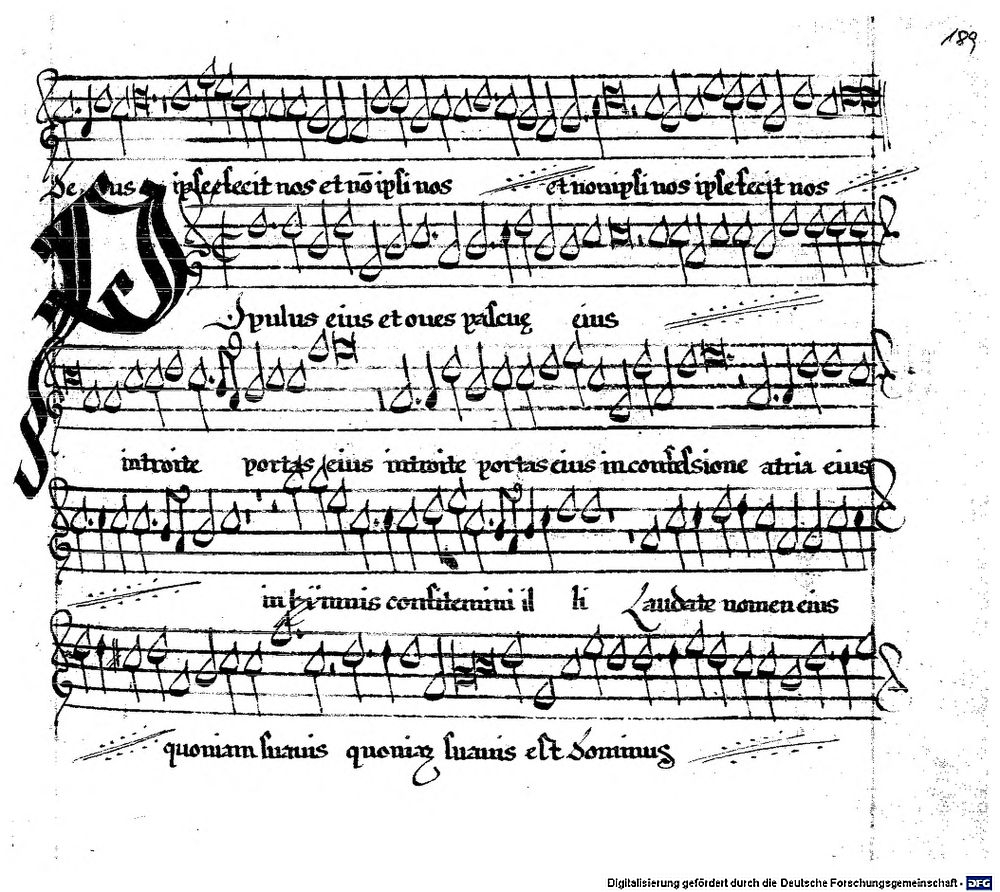 189
De us ipse fecit nos et nõ ipsi nos et non ipsi nos ipse fecit nos
Populus eius et oues pascuę eius
introite portas eius introite portas eius in confessione atria eius
in hÿmnis confitemini il li Laudate nomen eius
quoniam suauis quoniaʒ suauis est Dominus
Digitalisierung gefördert durch die Deutsche Forschungsgemeinschaft - DFG